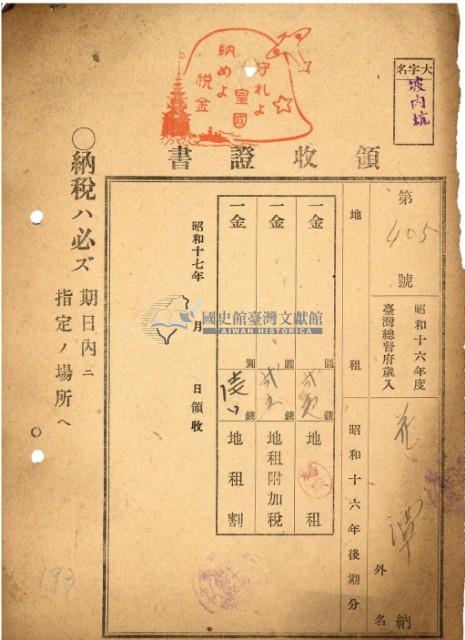 守れよ
皇國
納めよ
税金
大字名
坡內坑
領收證書
第 405 號
昭和十六年度
臺灣總督府歲入
外 名
納
地租
昭和十六年後期分
一金 圓 錢 地租
一金 圓 錢 地租附加稅
一金 圓 錢 地租割
昭和十七年 月 日領收
國史館臺灣文獻館
TAIWAN HISTORICA
◯納稅ハ必ズ
期日內ニ
指定ノ場所ヘ
193